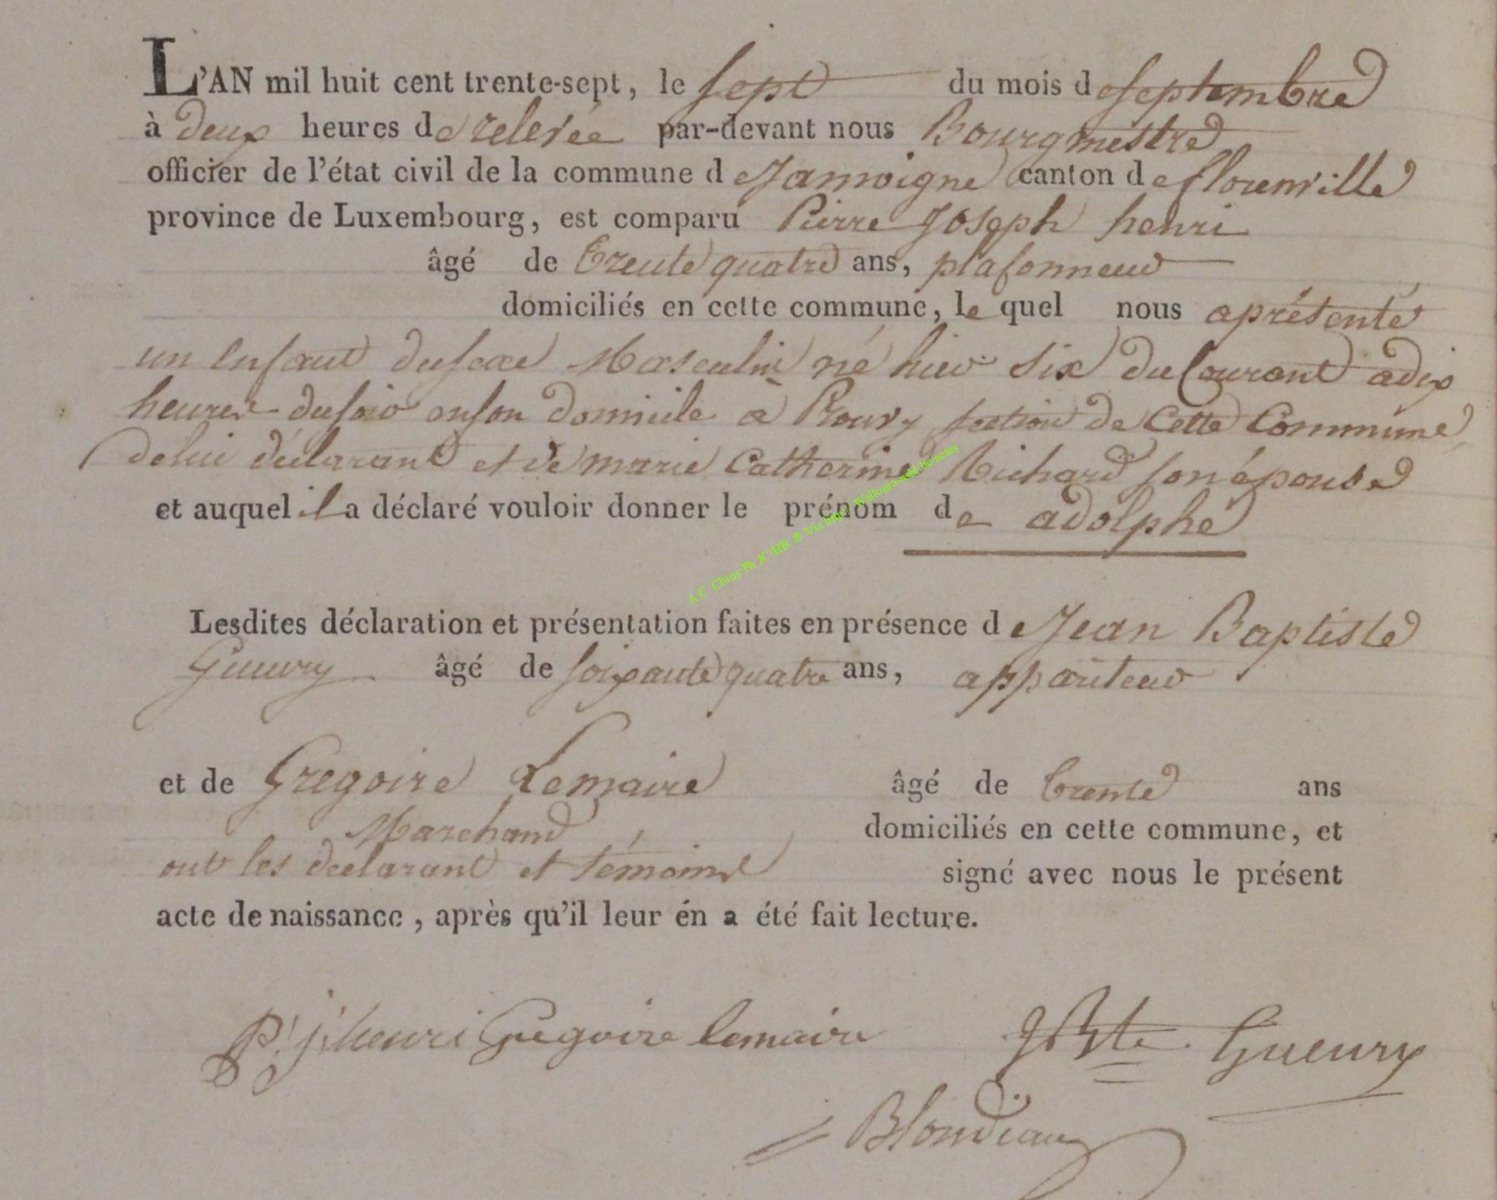 L'AN mil huit cent trente-sept, le sept du mois de septembre
à deux heures de relevée par-devant nous Bourgmestre
officier de l'état civil de la commune de Jamoigne canton de florenville
province de Luxembourg, est comparu Pierre Joseph henri
âgé de trente quatre ans, plafonneur
domiciliés en cette commune, le quel nous a présenté
un enfant du sexe Masculin né hier six du Courant a dix
heures du soir en son domicile a Prouvy section de Cette Commune
de lui déclarant et de marie Catherine Richard son épouse
et auquel il a déclaré vouloir donner le prénom de adolphe
Lesdites déclaration et présentation faites en présence de Jean Baptiste
Gueury âgé de soixante quatre ans, appariteur
et de Gregoire Lemaire âgé de trente ans
Marchand domiciliés en cette commune, et
ont les declarant et témoins signé avec nous le présent
acte de naissance, après qu'il leur én a été fait lecture.
P. j. henri Gregoire lemaire J Bte Gueury
Blondiau